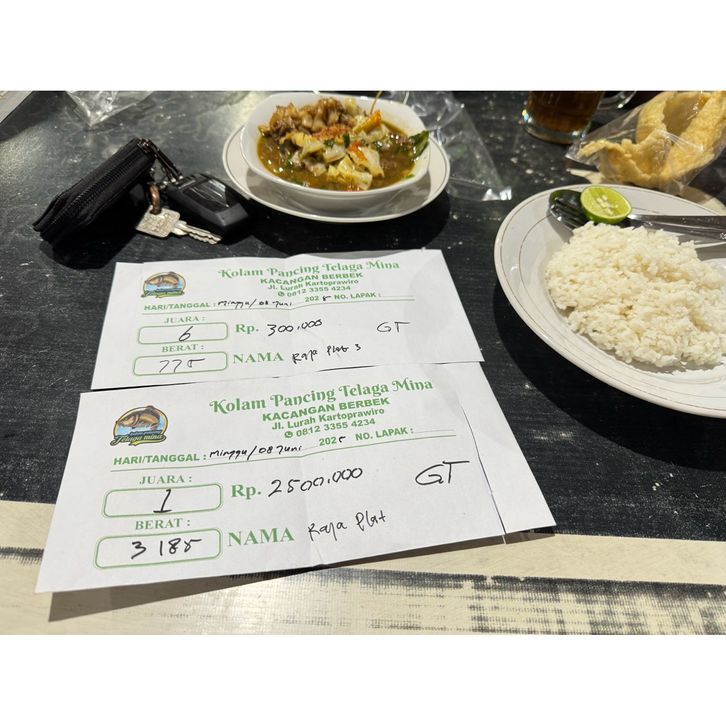 Kolam Pancing Telaga Mina
KACANGAN BERBEK
Jl. Lurah Kartoprawiro
0812 3355 4234
HARI/TANGGAL : Minggu/08 Juni 2025 NO. LAPAK :
JUARA :
6 Rp. 300.000 GT
BERAT :
775 NAMA Raja Plat 3
Kolam Pancing Telaga Mina
KACANGAN BERBEK
Jl. Lurah Kartoprawiro
0812 3355 4234
HARI/TANGGAL : Minggu/08 Juni 2025 NO. LAPAK :
JUARA :
1 Rp. 2500.000 GT
BERAT :
3 185 NAMA Raja Plat
Telaga mina